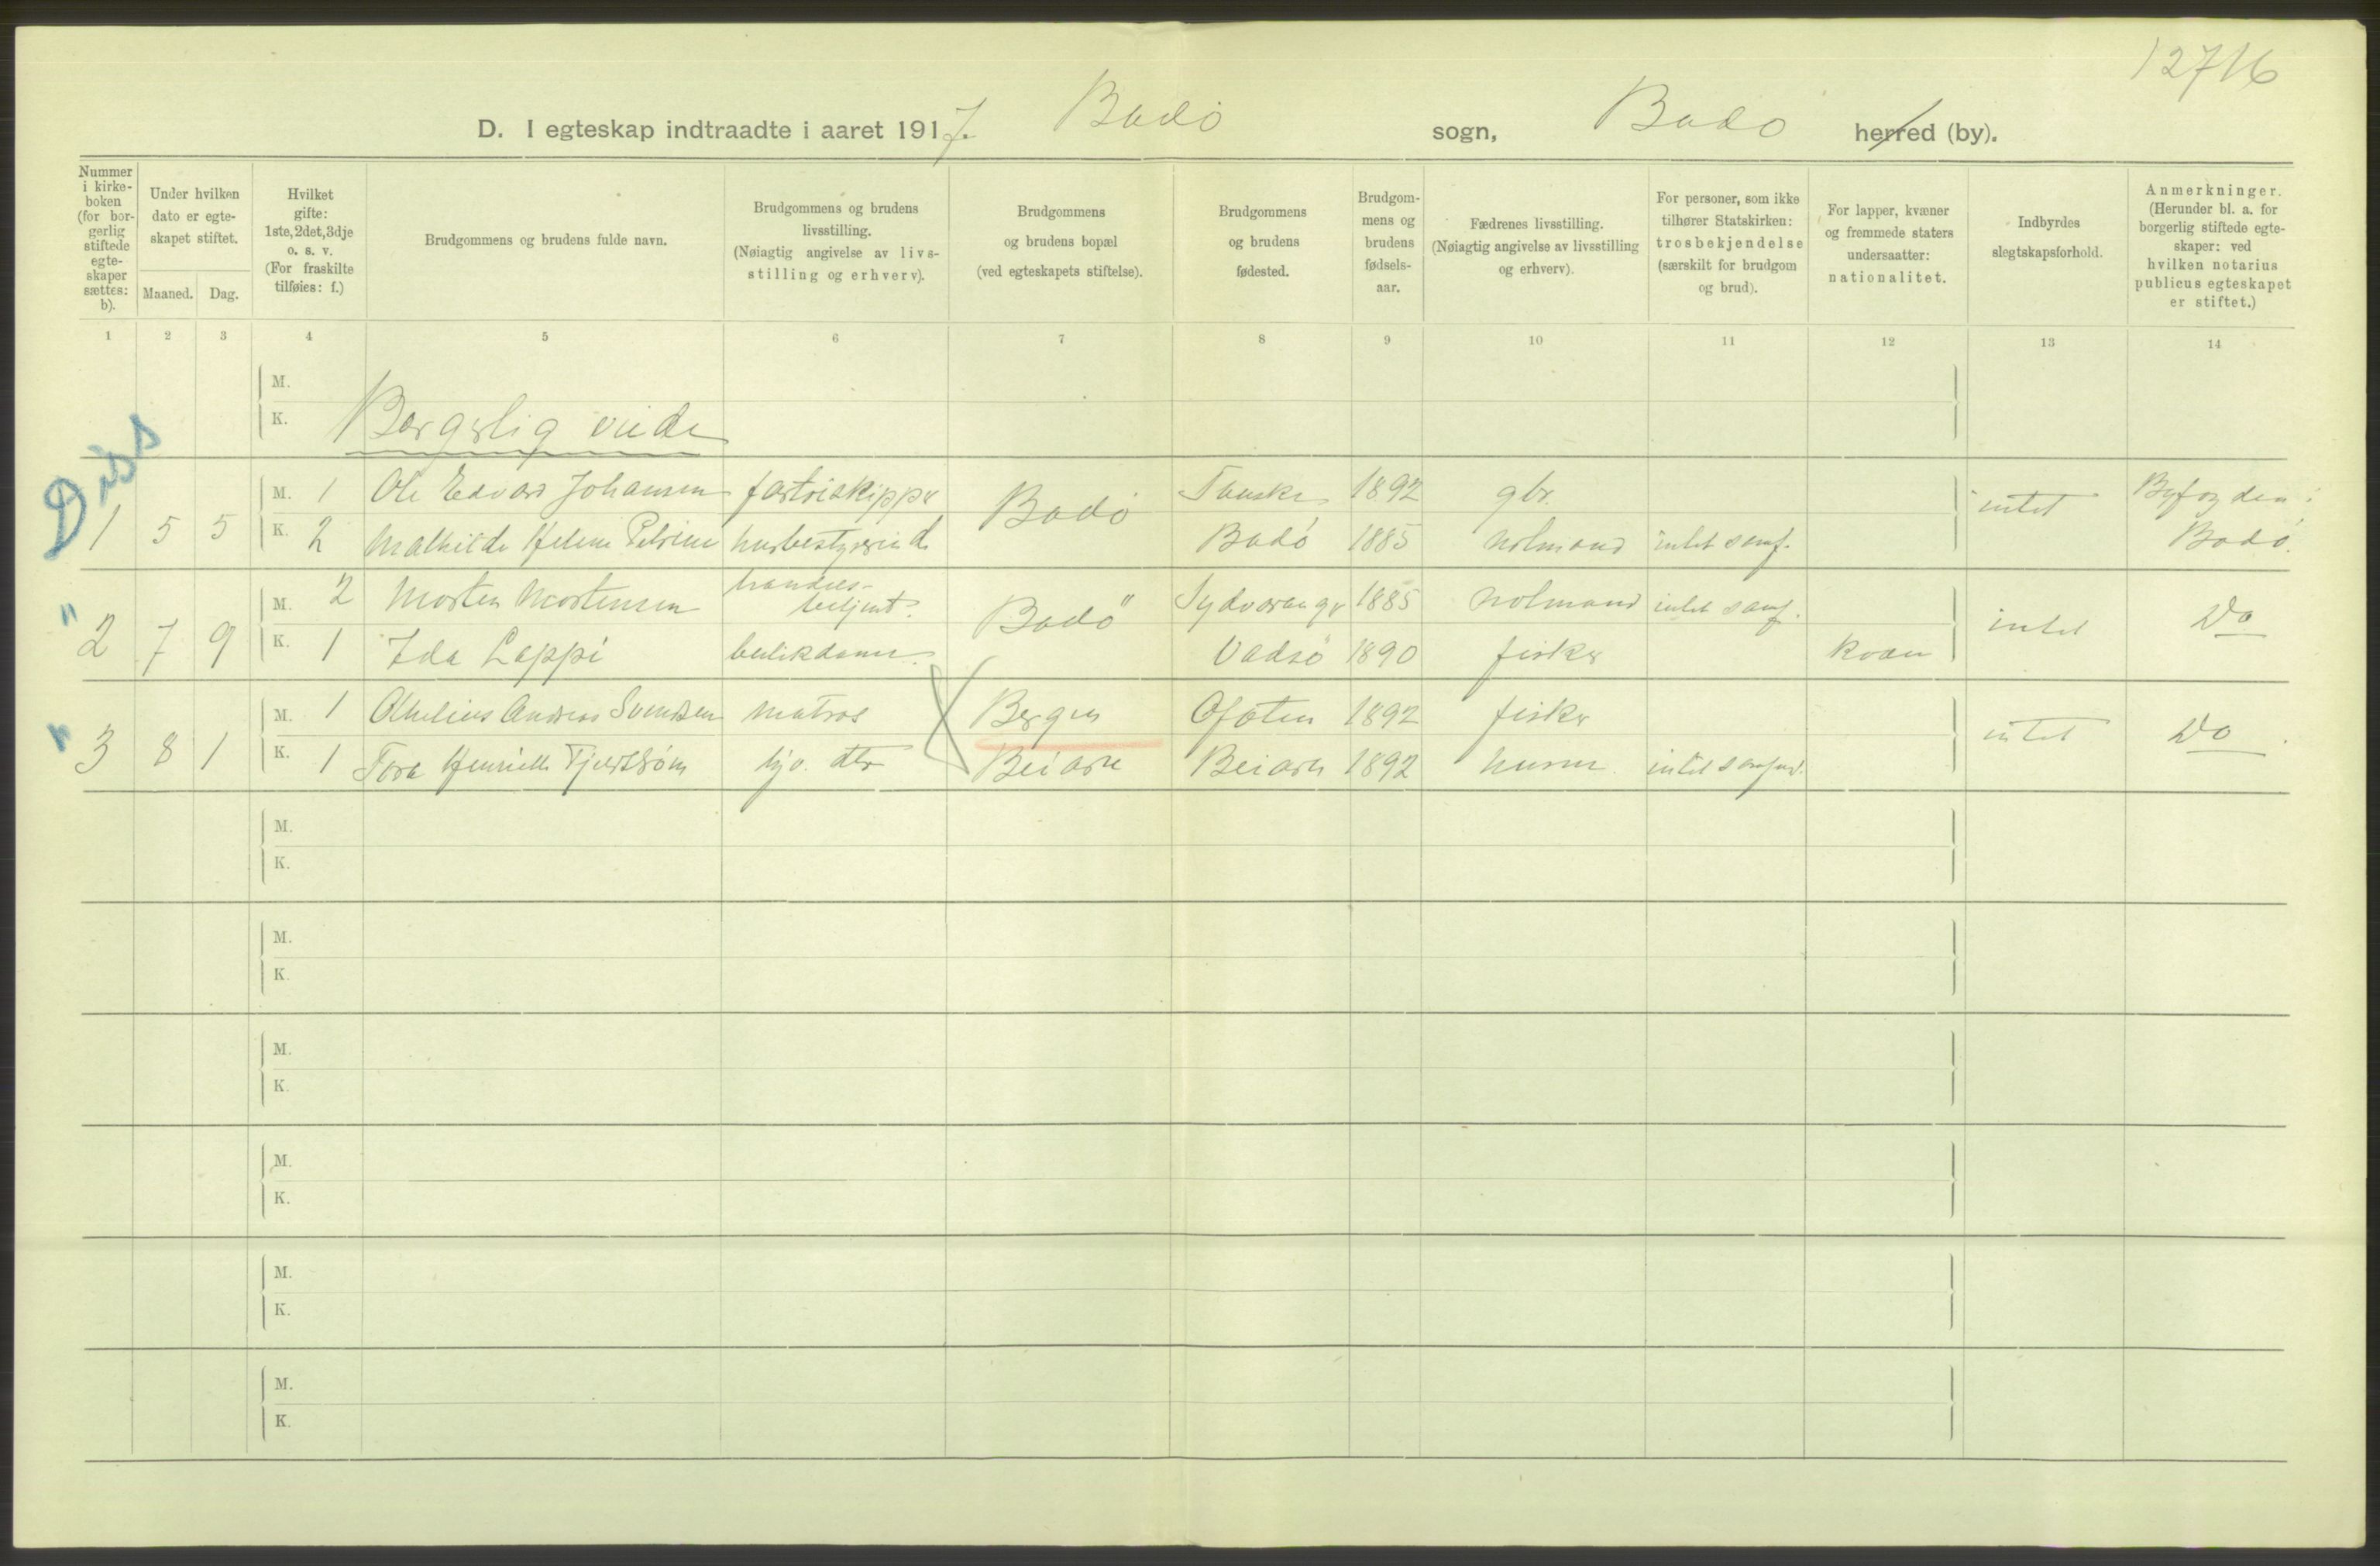 12716
D. I egteskap indtraadte i aaret 1917. Bodö sogn, Bodö herred (by).
Nummer i kirke-boken (for bor-gerlig stiftede egte-skaper sættes: b).
Under hvilken dato er egte-skapet stiftet.
Maaned. Dag.
Hvilket gifte: 1ste, 2det, 3dje o. s. v. (For fraskilte tilføies: f.)
Brudgommens og brudens fulde navn.
Brudgommens og brudens livsstilling. (Nøiagtig angivelse av livs-stilling og erhverv).
Brudgommens og brudens bopæl (ved egteskapets stiftelse).
Brudgommens og brudens fødested.
Brudgom-mens og brudens fødsels-aar.
Fædrenes livsstilling. (Nøiagtig angivelse av livsstilling og erhverv).
For personer, som ikke tilhører Statskirken: trosbekjendelse (særskilt for brudgom og brud).
For lapper, kvæner og fremmede staters undersaatter: nationalitet.
Indbyrdes slegtskapsforhold.
Anmerkninger. (Herunder bl. a. for borgerlig stiftede egte-skaper: ved hvilken notarius publicus egteskapet er stiftet.)
1 2 3 4 5 6 7 8 9 10 11 12 13 14
M.
K. Borgerlig viede
Diss
M. 1 Ole Edvard Johansen Bodö 1892 gbr. intet Byfogden i
1 5 5 K. 2 Mathilde Helene Petrine husbestyrerinde Bodö 1885 nolmand intet samf. Bodö.
M. 2 Morten Mortensen handels-betjent. Bodö Sydvaranger 1885 nolmand intet samf. intet Do
" 2 7 9 K. 1 Ida Lappi butikdame. Vadsö 1890 fisker kvæn
M. 1 Andreas Svendsen matros Bergen Ofoten 1892 fisker intet Do
" 3 8 1 K. 1 Tora hjv. dtr Beiarn Beiarn 1892 husm. intet samfund.
M.
K.
M.
K.
M.
K.
M.
K.
M.
K.
M.
K.